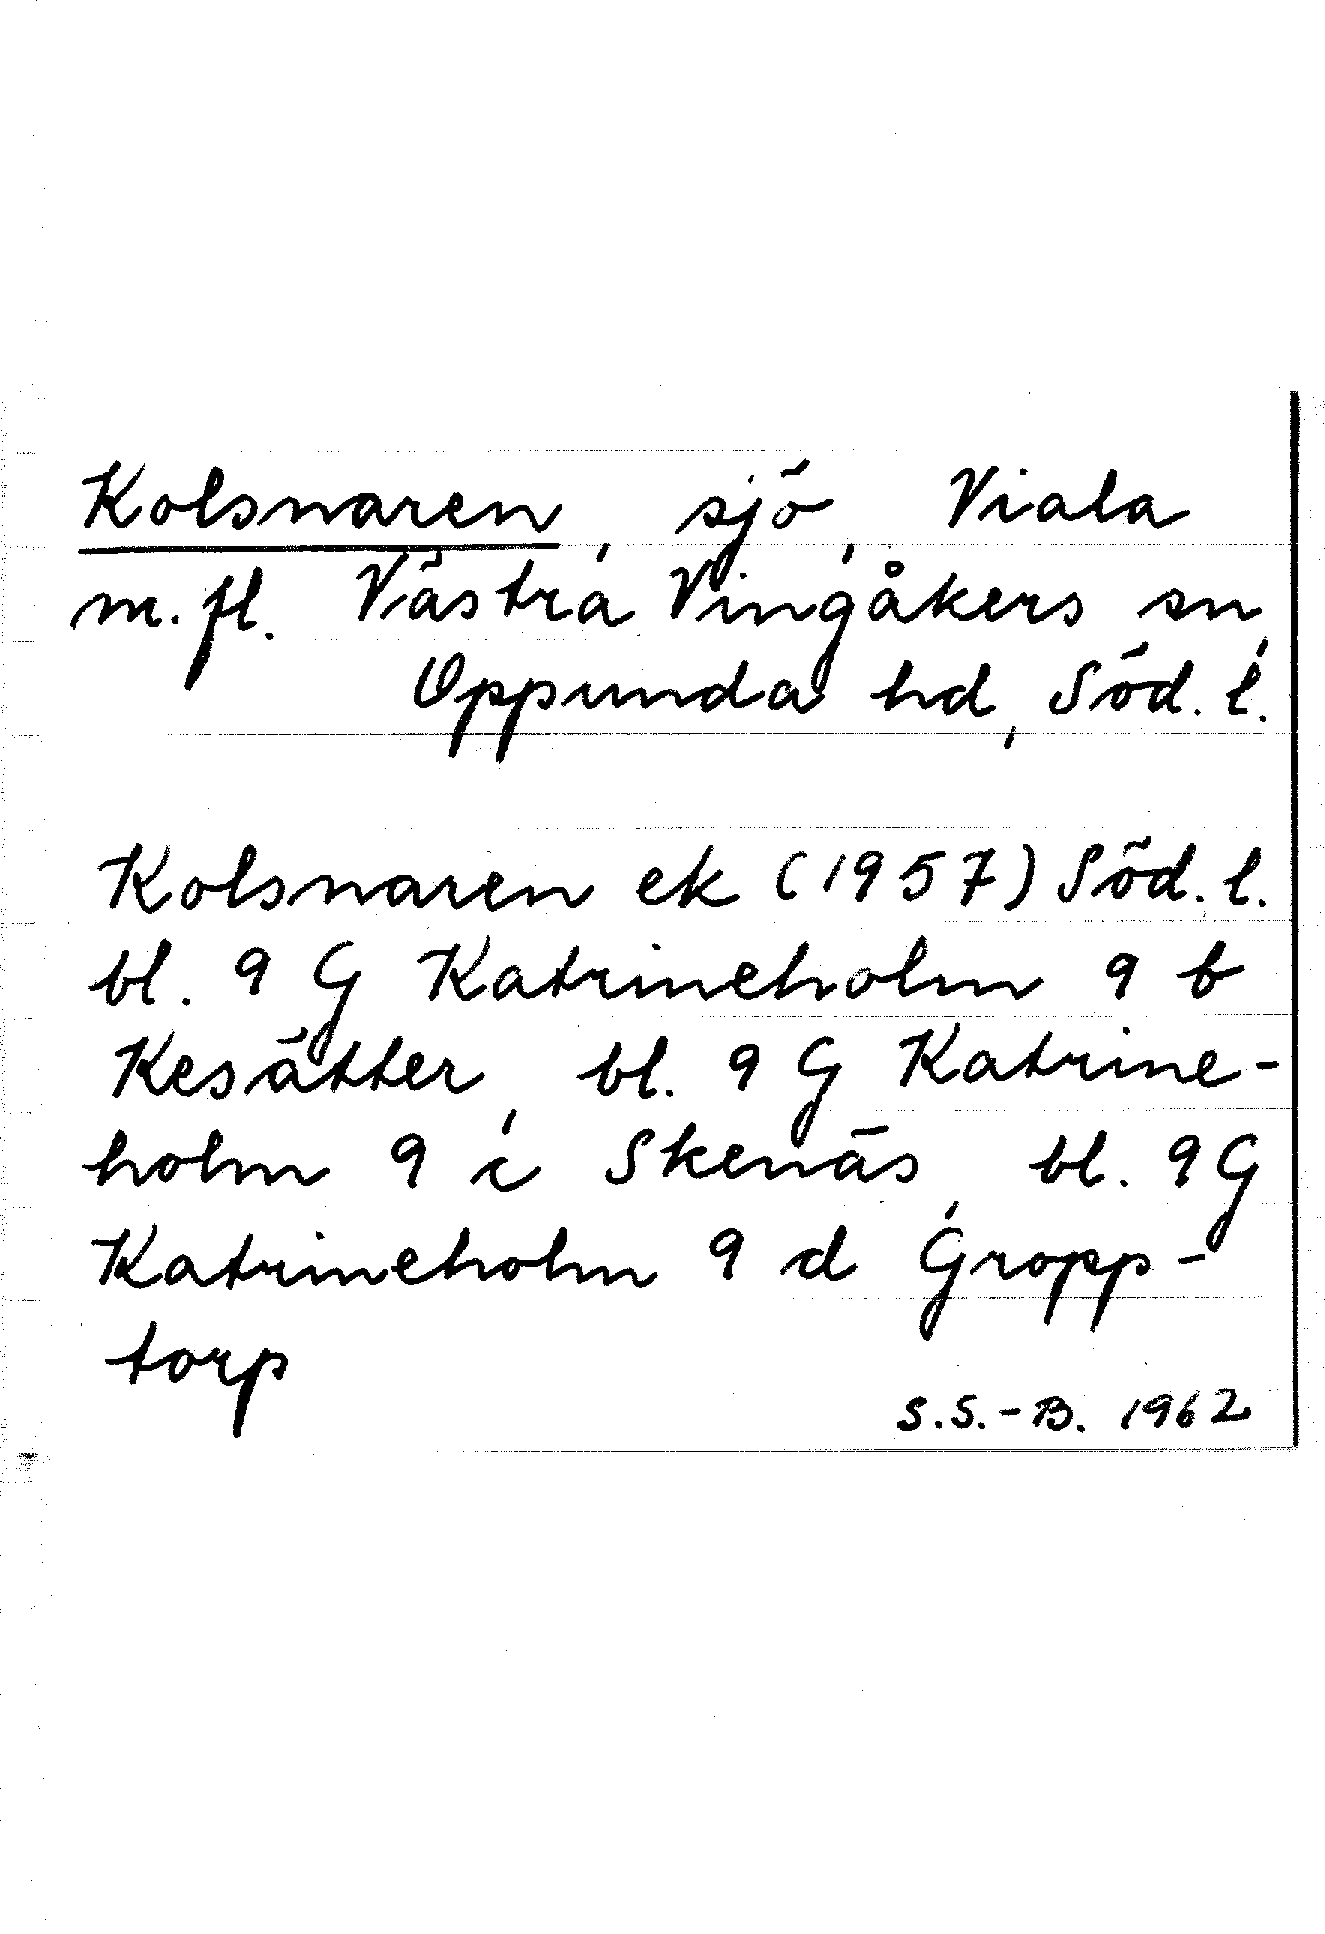 Kolsnaren, sjö, Viala
m.fl. Västra Vingåkers sn,
Oppunda hd, Söd. l.
Kolsnaren ek (1957) Söd. l.
bl. 9 G Katrineholm 9 b
Kesätter, bl. 9 G Katrine-
holm 9 c Skenäs, bl. 9 G
Katrineholm 9 d Gropp-
torp
S.S.-B. 1962